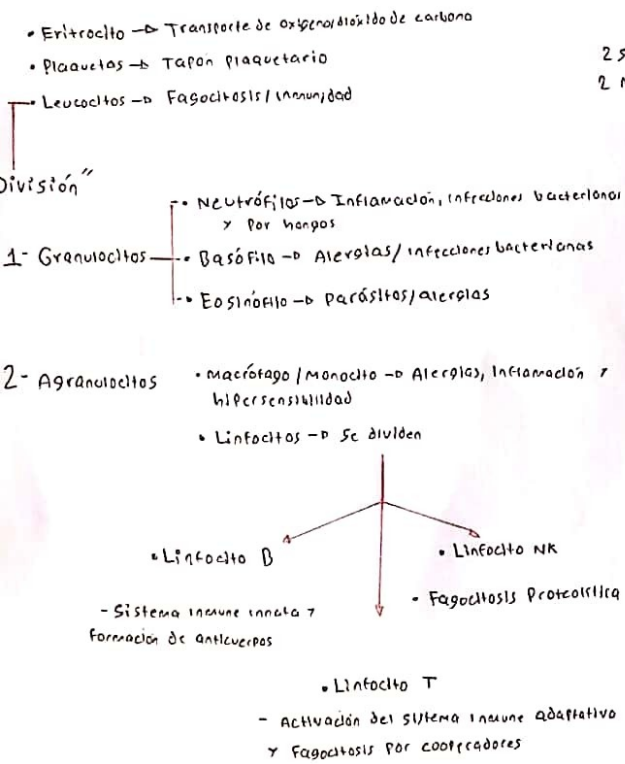 • Eritrocito → Transporte de oxígeno/dióxido de carbono
• Plaquetas → Tapón plaquetario
2
• Leucocitos → Fagocitosis/inmunidad
2
División"
• Neutrófilos → Inflamación, infecciones bacterianas
y por hongos
1- Granulocitos
• Basófilo → Alergias/infecciones bacterianas
• Eosinófilo → Parásitos/alergias
2- Agranulocitos
• Macrófago/Monocito → Alergias, Inflamación y
hipersensibilidad
• Linfocitos → Se dividen
• Linfocito B
• Linfocito NK
- Sistema inmune innata y
formación de anticuerpos
• Fagocitosis Proteolítica
• Linfocito T
- Activación del sistema inmune adaptativo
y Fagocitosis por cooperadores